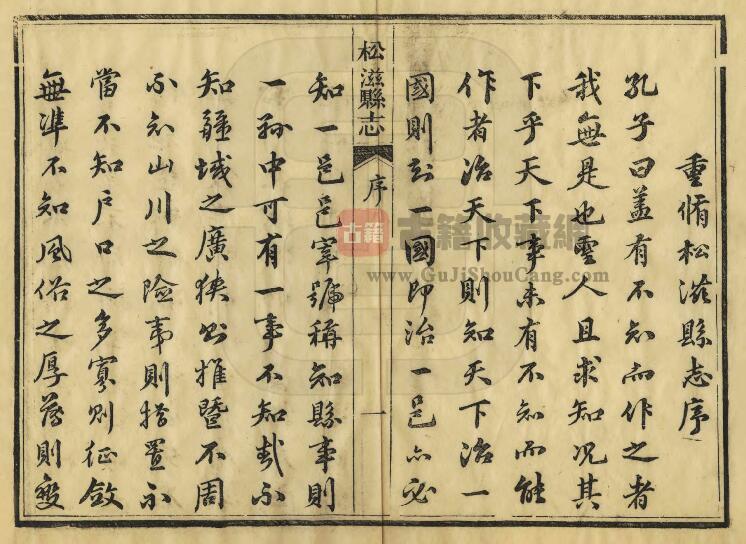 重脩松滋縣志序
孔子曰盖有不知而作之者
我無是也聖人且求知况其
下乎天下事未有不知而能
作者治天下則知天下治一
國則知一國即治一邑亦必
松滋縣志
序
一
知一邑邑宰號稱知縣事則
一縣中可有一事不知哉不
知疆域之廣狹則推暨不周
不知山川之險夷則措置不
當不知戶口之多寡則征斂
無準不知風俗之厚薄則變
古籍
古籍收藏網
www.GuJiShouCang.com